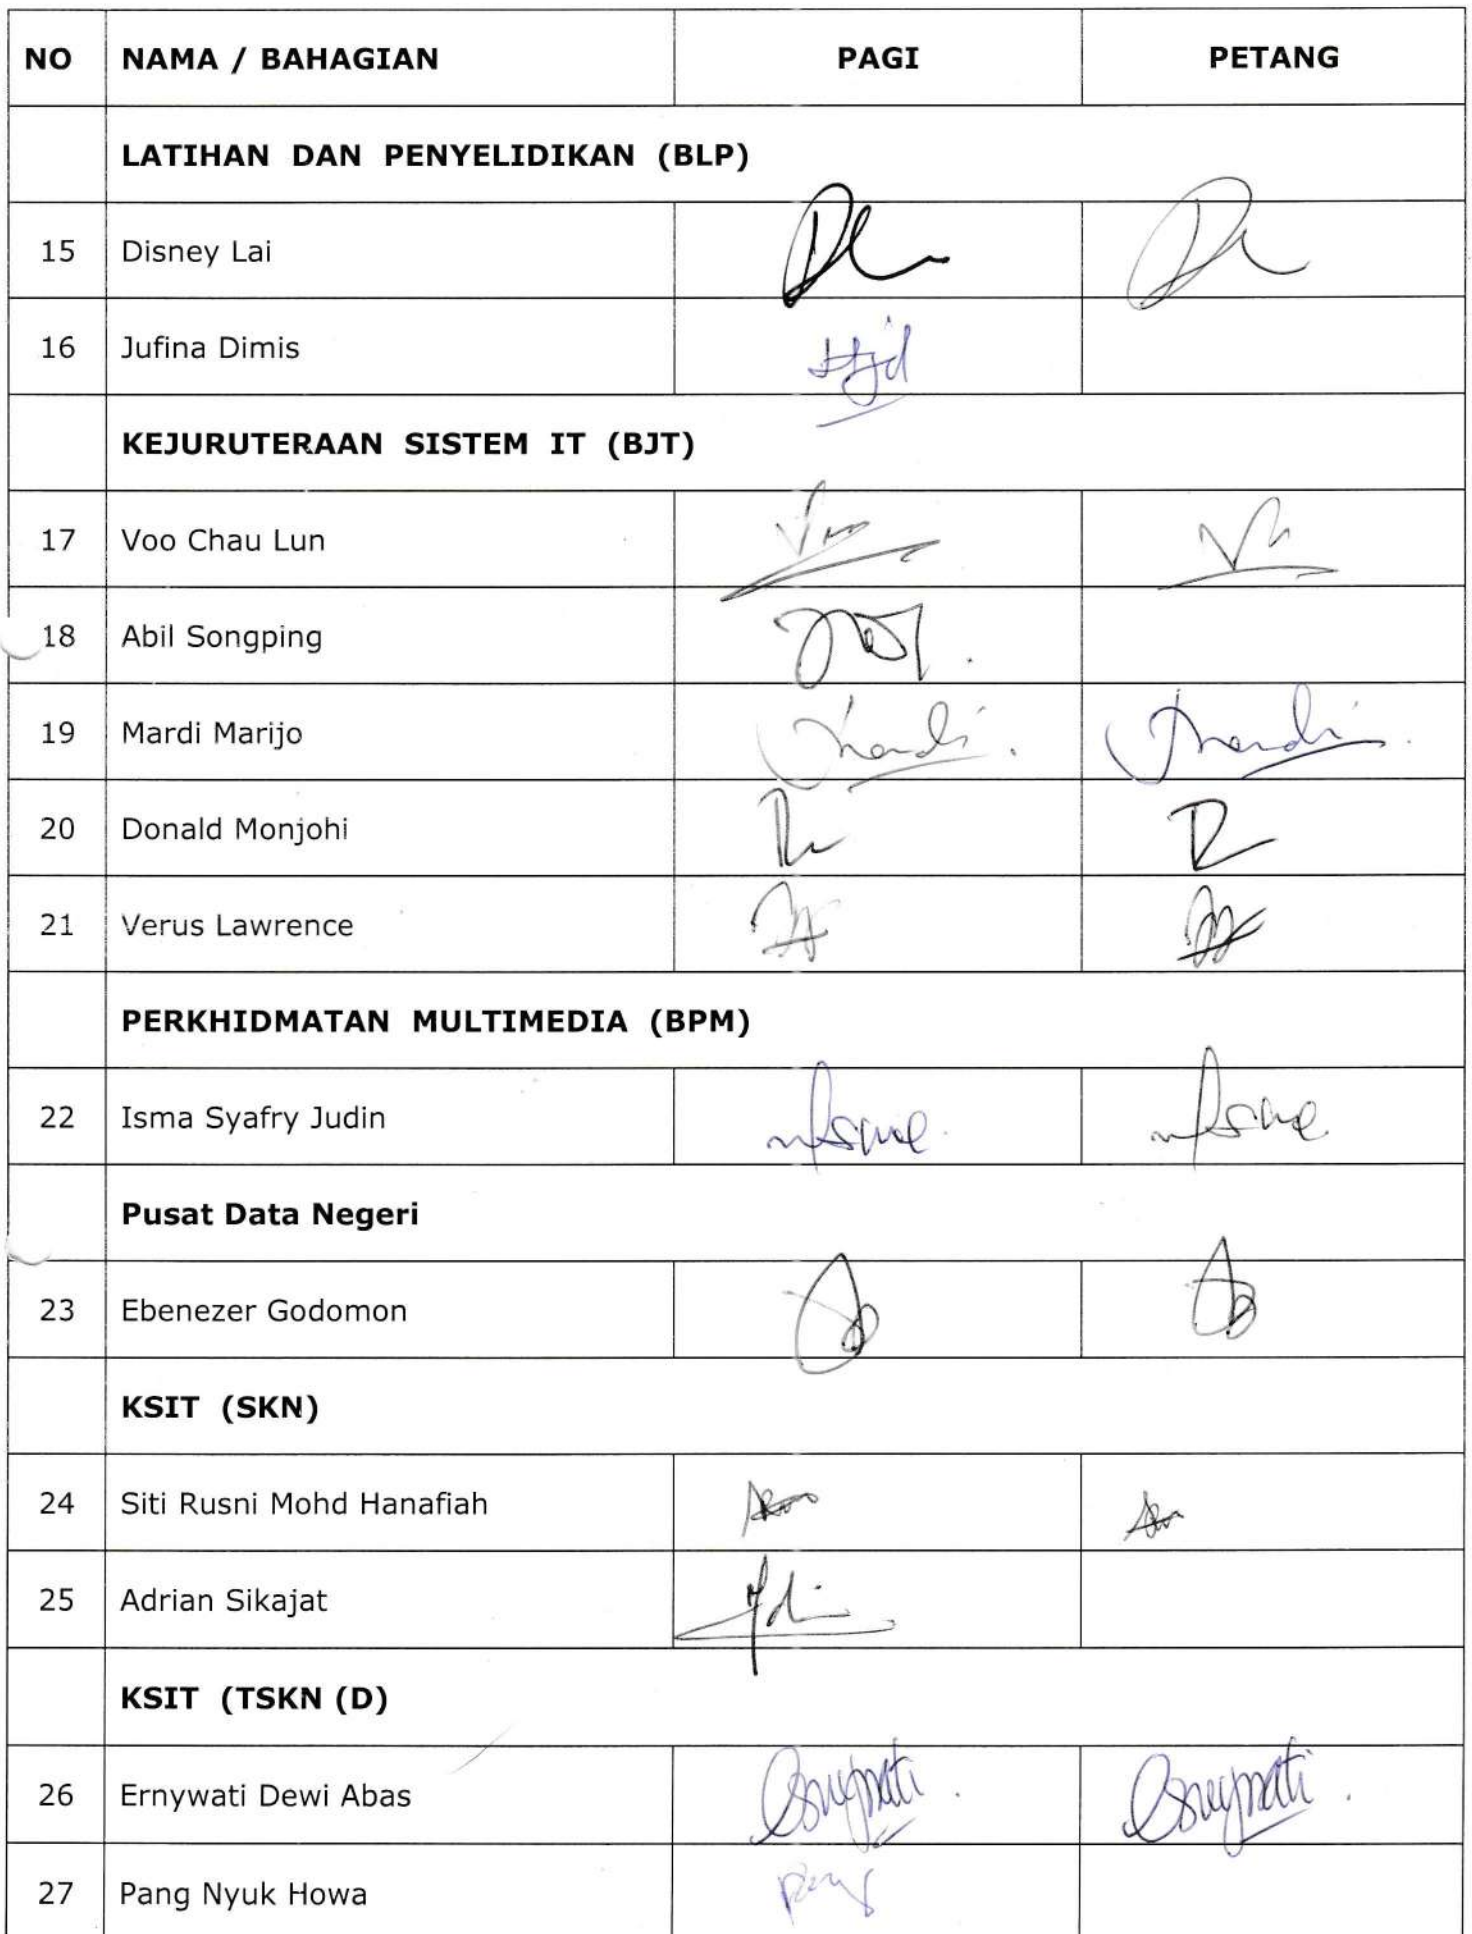 NO NAMA / BAHAGIAN PAGI PETANG
LATIHAN DAN PENYELIDIKAN (BLP)
15 Disney Lai
16 Jufina Dimis
KEJURUTERAAN SISTEM IT (BJT)
17 Voo Chau Lun
18 Abil Songping
19 Mardi Marijo
20 Donald Monjohi
21 Verus Lawrence
PERKHIDMATAN MULTIMEDIA (BPM)
22 Isma Syafry Judin
Pusat Data Negeri
23 Ebenezer Godomon
KSIT (SKN)
24 Siti Rusni Mohd Hanafiah
25 Adrian Sikajat
KSIT (TSKN (D)
26 Ernywati Dewi Abas
27 Pang Nyuk Howa